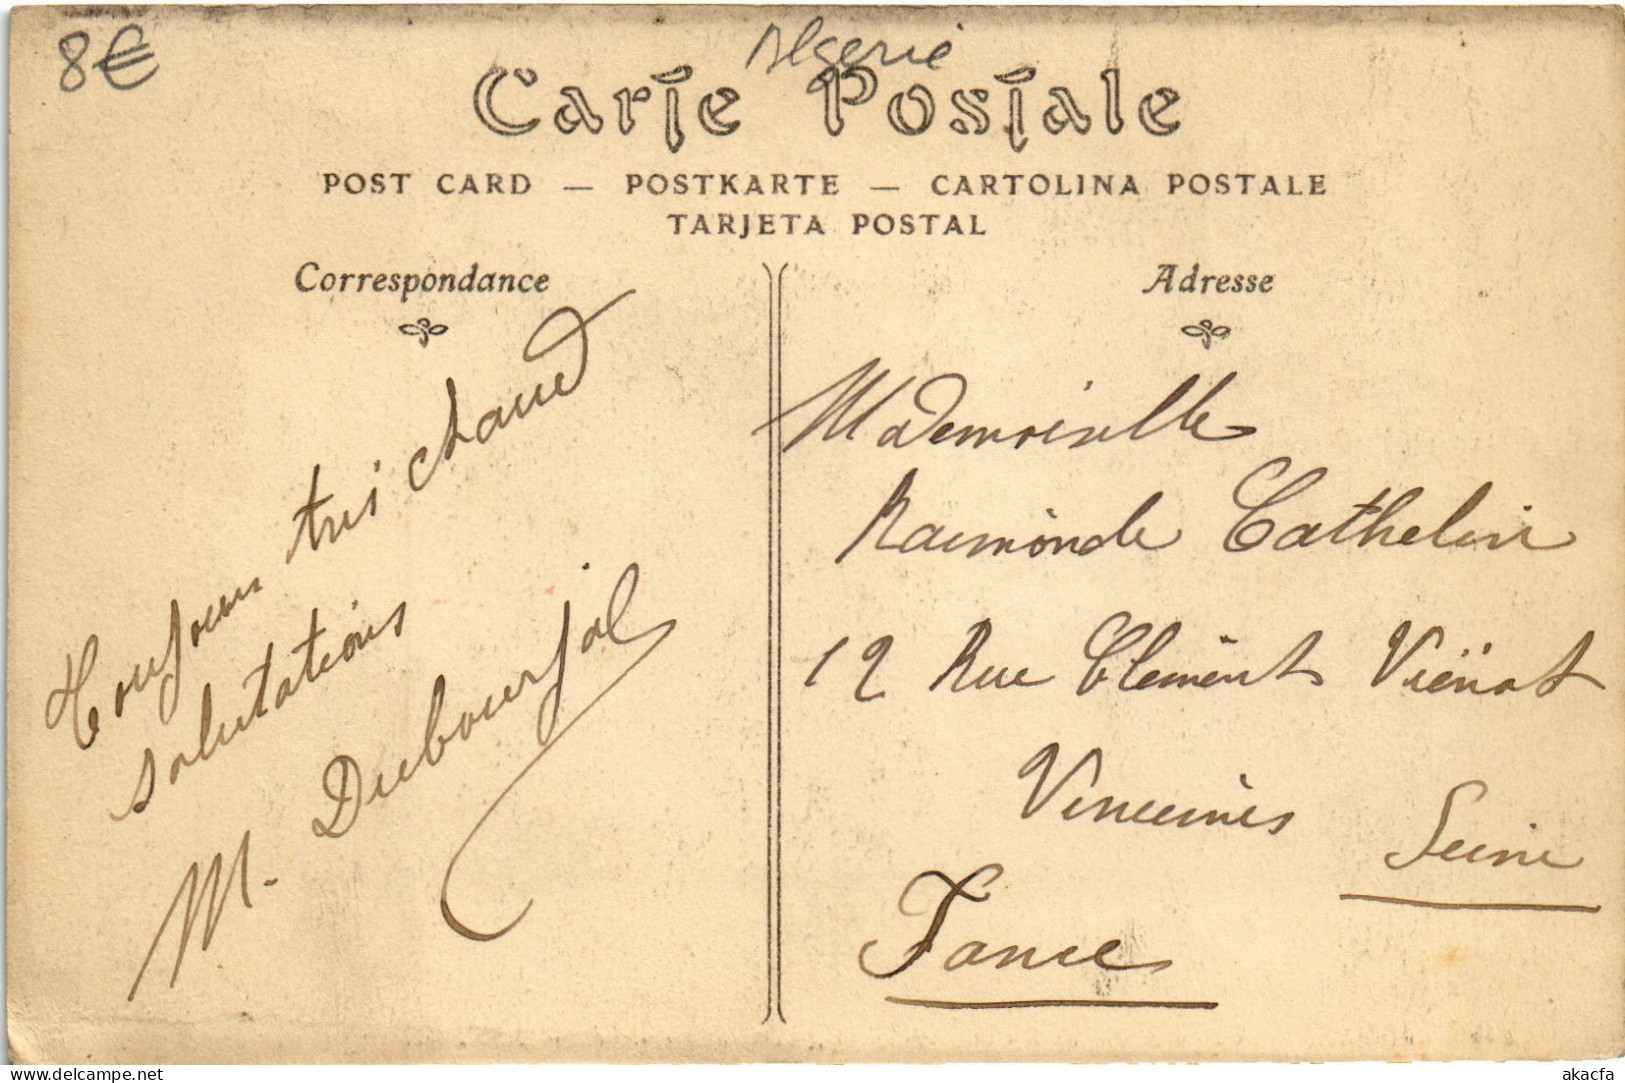 8€
Algerie
Carte Postale
POST CARD — POSTKARTE — CARTOLINA POSTALE
TARJETA POSTAL
Correspondance
Adresse
Toujours très chaud
salutations
M. Dubourjal
Mademoiselle
Raimonde Cathelin
12 Rue Clement Viënot
Vincennes
Seine
France
www.delcampe.net
akacfa